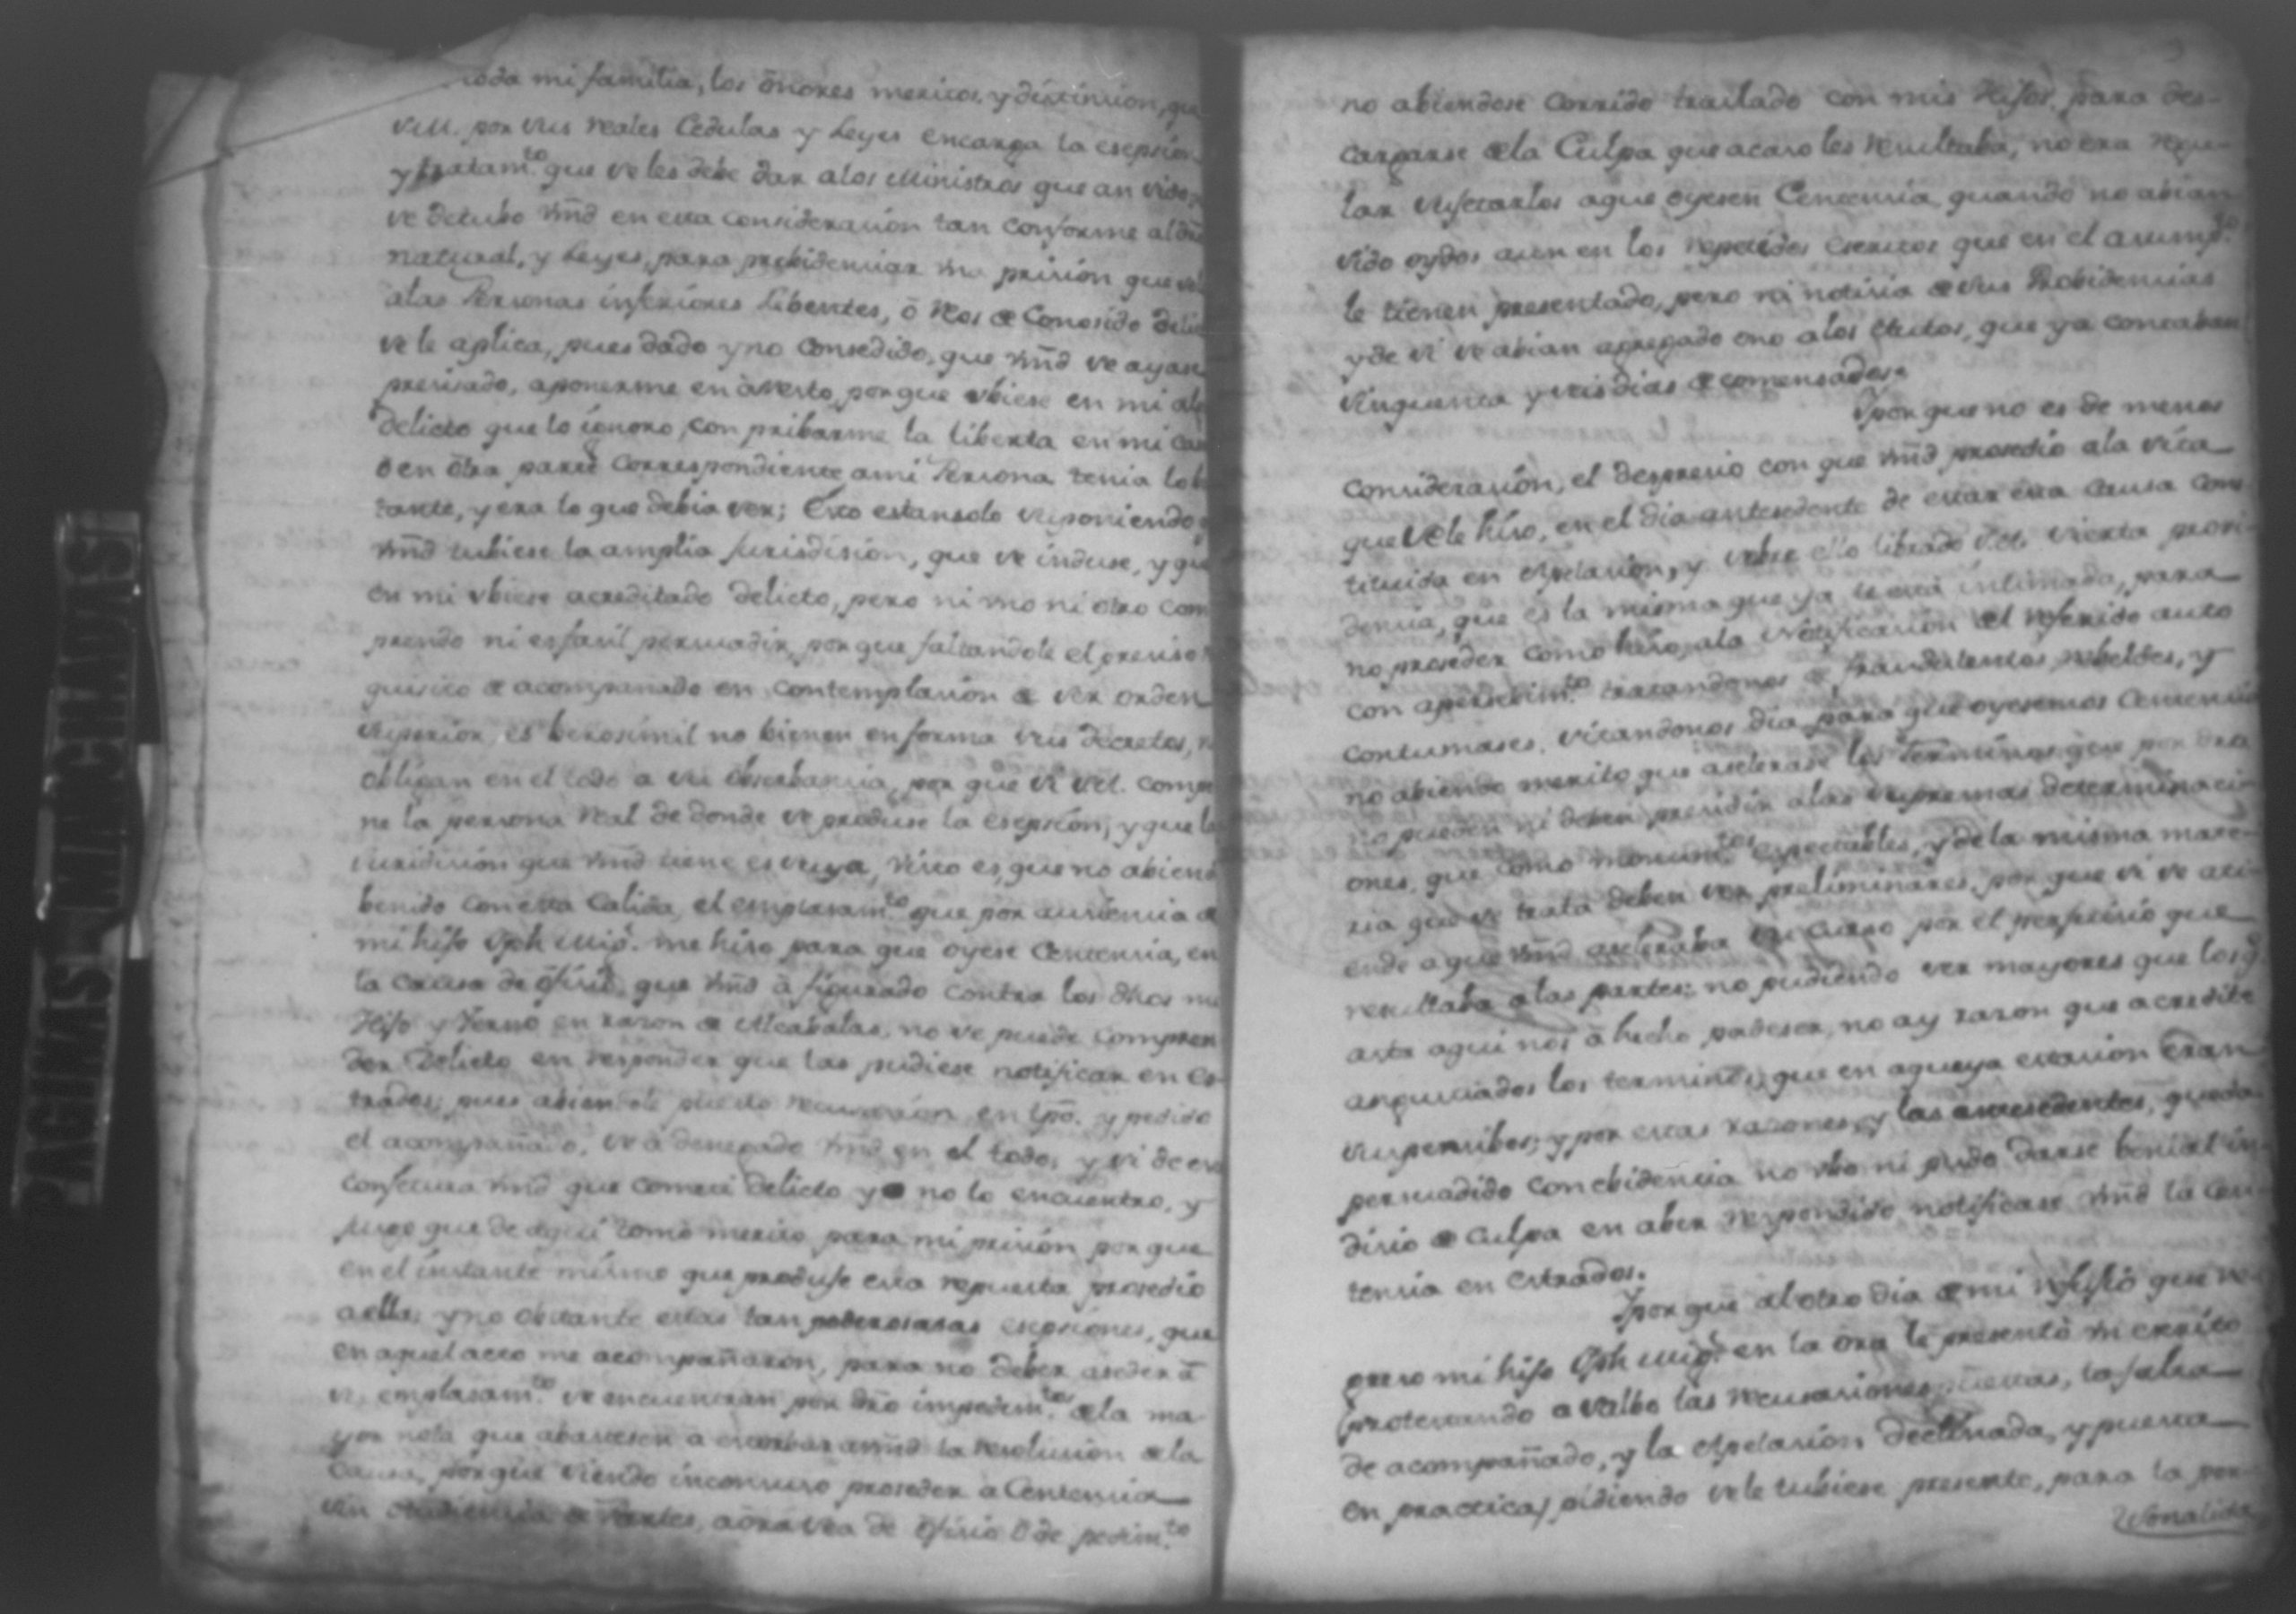 toda mi familia, los ōnores meritos, y distinsion, que
V.M. por sus reales Cedulas y Leyes encarga la esepsion
y tratam.to que se les debe dar a los Ministros que an sido,
se detubo Vmd en esta consideracion tan conforme al dro
natural, y Leyes, para probidenciar una prision que solo
a las Personas inferiores Libertes, ō Reos de Conosido delito
se le aplica, pues dado y no consedido, que Vmd se ayase
presisado, a ponerme en àrresto, porque ubiese en mi algun
delicto que lo ignoro, con pribarme la liberta en mi casa
o en ōtra parte correspondiente a mi Persona tenia lo bas
tante, y era lo que debia ser; Esto es tan solo suponiendo q
Vmd tubiese la amplia Jurisdision, que se induse, y que
en mi ubiese acreditado delicto, pero ni uno ni otro com
prendo ni es fasil persuadir, porque faltandole el presiso re
quisito de acompañado en contemplasion de ser orden
superior, es berosimil no bienen en forma sus decretos, ni
obligan en el todo a su obserbansia, por que si V.M. compo
ne la persona Real de donde se produse la esepsion, y que la
Juridision que Vmd tiene es suya, visto es, que no abiend
benido con esta Calida, el emplasam.to que por ausencia de
mi hijo Jph Mig.l me hiso para que oyese Centensia, en
la causa de ofisio, que Vmd à figurado contra los dhos mi
Hijo y Yerno en rason de Alcabalas, no se puede compren
der Delicto en responder que las pudiese notificar en es-
trados; pues abiendole puesto recusasion en tpo. y pedido
el acompañado, se a denegado Vmd en el todo, y si de esto
conjetura Vmd que cometi delicto yo no lo encuentro, y
juro que de aqui tomo merito para mi prision por que
en el instante mismo que produje esta repuesta prosedio
a ella; y no obstante estas tan poderosas esepsiones, que
en aquel acto me acompañaron, para no deber aseder à
su emplasam.to se encuentran por dro impedim.tos de la ma
yor nota que abansasen a estorbar a Vmd la resolusion de la
causa, porque siendo inconcuso proseder a Centensia
sin audiensia de Partes, aōra sea de ofisio ō de pedim.to
no abiendose corrido traslado con mis Hijos, para des-
cargarse de la Culpa que acaso les resultaba, no era regu-
lar sujetarlos a que oyesen Centensia quando no abian
sido oydos aun en los repetidos escritos que en el asump.to
le tienen presentado, pero ni notisia de sus Probidensias
y de si se abian agregado ono a los Autos, que ya contaban
sinquenta y seis dias de comensados.
Y por que no es de menos
consideracion, el despresio con que Vmd prosedio a la sita
que se le hiso, en el dia antesedente de estar esta Causa cons
tituida en Apelasion, y sobre ello librado V.A. sierta provi-
densia, que es la misma que ya le está intimada, para
no proseder como hiso, a la Notificasion del referido auto
con apersebim.to tratandonos de fraudulentos, rebeldes, y
contumases, sitandonos dia para que oyesemos Centensia
no abiendo merito que aselerase los Terminos que por dro
no pueden ni deben presidir a las supremas determinasi-
ones, que como monum.tos espectables, y de la misma mate-
ria que se trata deben ser preliminares, por que si se ati-
ende a que Vmd aseleraba su curso por el perjuisio que
resultaba a las partes; no pudiendo ser mayores que los q.
asta aqui nos à hecho padeser, no ay rason que acredite
angustiados los terminos, que en aqueya estasion eran
suspensibos; y por estas rasones, y las antesedentes, queda
persuadido con ebidensia no ubo ni pudo darse benial in-
disio de culpa en aber respondido notificase Vmd la Cen-
tensia en estrados.
Y por que al otro dia de mi
preso mi hijo Jph Mig.l en la ora le presentò un escrito
protestando a salbo las recusasiones puestas, la falta
de acompañado, y la Apelasion declinada, y puesta
en practica, pidiendo se le tubiese presente, para la per-
sonalida
PAGINAS MANCHADAS